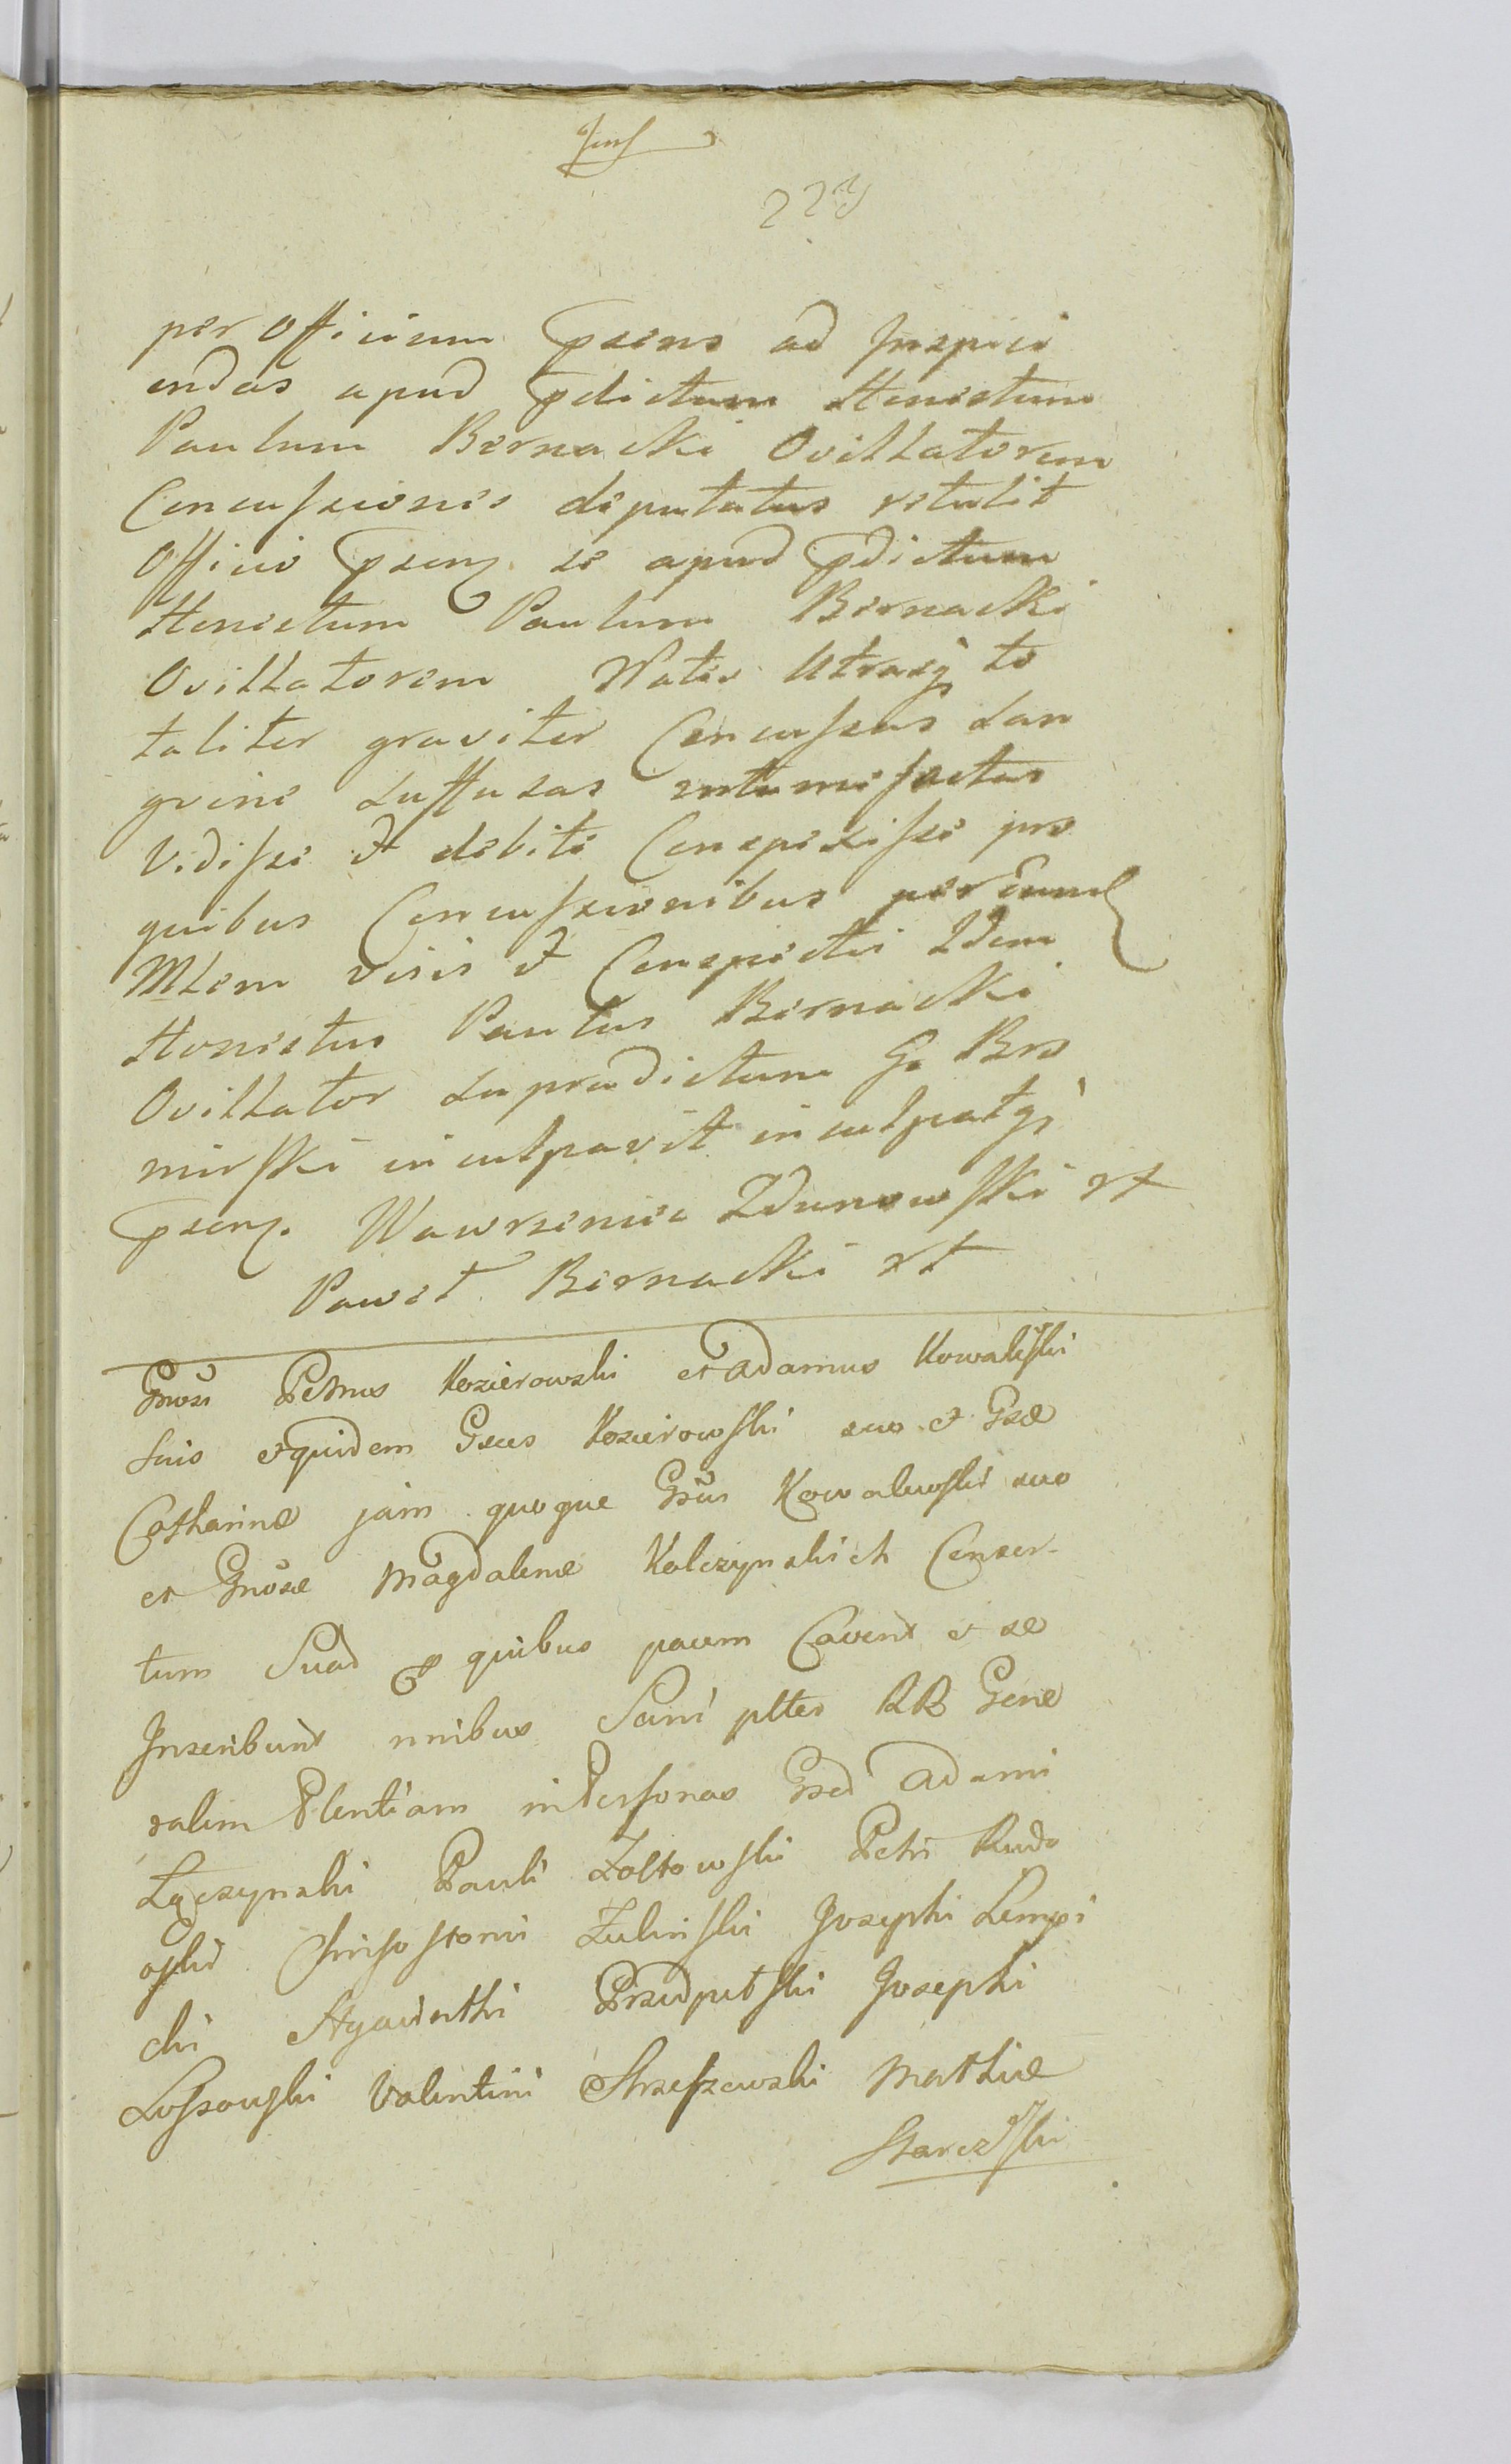 per Officium psens ad Inspici
endas apud pdictum Honestum
Paulum Biernacki Ovillatorem
Concussiones deputatus retulit
Officio psenj se apud pdictum
Honestum Paulum Biernacki
Ovillatorem Nates Utrasq to
taliter graviter Concussas San
gvine Suffusas intumefactas
Vidisse et debite Conspexisse pro
quibus Concussionibus per Eund
Mlem visis et Conspectis Idem
Honestus Paulus Biernacki
Ovillator Supradictum G. Bro
mirski inculpavit inculpatq
psenj. Wawrzeniec Zdunowski
Paweł Biernacki
Gnosi Petrus Kozierowski et Adamus Kowalewski
Suis equidem Gsus Kozierowski suo et Gsæ
Catharinæ jam quoque Gsus Kowalewski suo
et Gnosæ Magdalenæ Kolczynskich Consor-
tum Suad p quibus pacem Cavent et se
Inscribunt nnibus Sani pltes RR Gene
ralem Plentiam in Personas Gsod Adami
Łączynski Pauli Zoltowski Petri Rudo
wski Chrisostomi Zulinski Josephi Lempi
cki Hyacinthi Przedpełski Josephi
Lossowski Valentini Strzeszewski Mathiæ
Starczewski